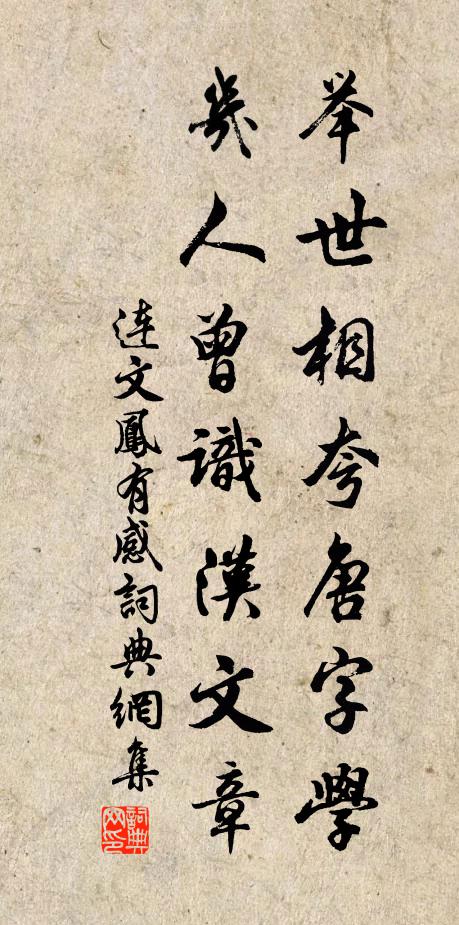 举世相夸唐字學
幾人曾識漢文章
連文鳳有感詞典網集
詞典網印